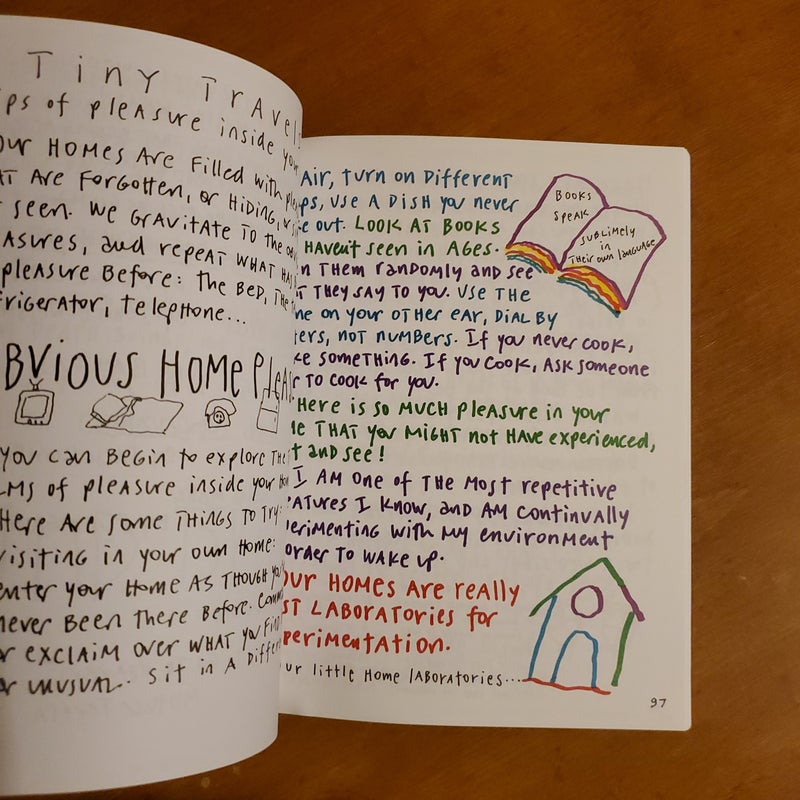 Tiny Travel
ps of pleasure inside
our Homes Are Filled with
AT Are Forgotten, or Hiding,
seen. We Gravitate to the
asures, and repeat what
pleasure Before: The Bed, The
frigerator, telephone...
Bvious Home Pleas
you can Begin to explore The
lms of pleasure inside your
Here Are some Things to Try:
visiting in your own Home:
enter your Home As Though
never Been There Before.
or exclaim over what you Fin
or unusual. Sit in A Differ
Air, turn on Different
ps, use A Dish you never
e out. Look At Books
Haven't seen in Ages.
n Them randomly and see
T They say to you. Use The
ne on your other ear, Dial By
ters, not numbers. If you never cook,
ke something. If you cook, Ask someone
r to cook for you.
Here is so much pleasure in your
e That you might not Have experienced,
t and see!
I Am one of The most repetitive
atures I know, and Am continually
erimenting with my environment
order to wake up.
our Homes Are really
st Laboratories for
perimentation.
ur little Home Laboratories...
Books
speak
sublimely
in
Their own language
97